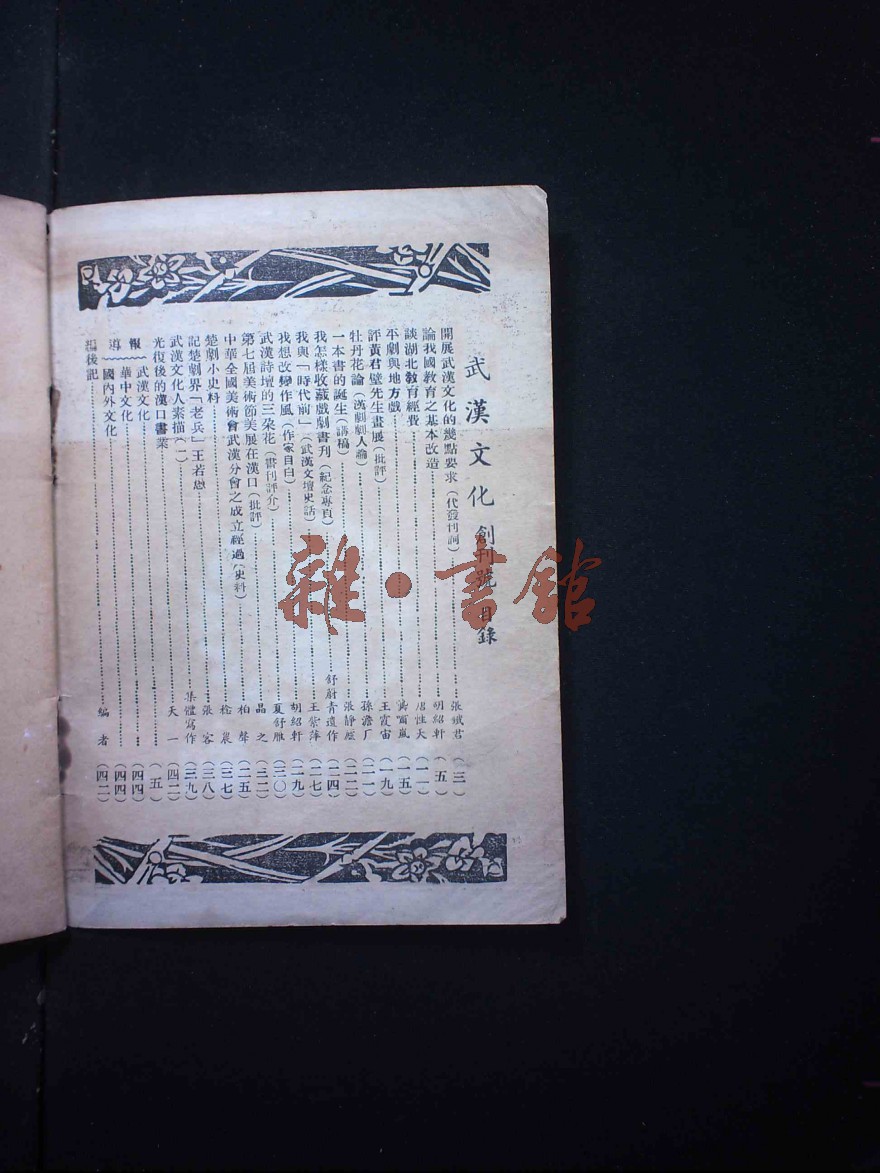 武漢文化 創刊號 目錄
開展武漢文化的幾點要求(代發刊詞)……張鐵君(三)
論我國教育之基本改造……胡紹軒(五)
談湖北教育經費……居性天(一一)
平劇與地方戲……萬爾嵐(一五)
評黃君璧先生畫展(批評)……王霞宙(一九)
牡丹花論(漢劇劇人論)……孫澹厂(二一)
一本書的誕生(講稿)……張靜廬(二二)
我怎樣收藏戲劇書刊(紀念專頁)……舒蔚青遺作(二四)
我與「時代前」(武漢文壇史話)……王紫萍(二七)
我想改變作風(作家自白)……胡紹軒(二九)
武漢詩壇的三朶花(書刊評介)……夏舒雁(三〇)
第七屆美術節美展在漢口(批評)……晶之(三二)
中華全國美術會武漢分會之成立經過(史料)……柏聲(二五)
楚劇小史料……稔裳(三七)
記楚劇界「老兵」王若愚……張容(三八)
武漢文化人素描(一)……集體寫作(三九)
光復後的漢口書業……天一(四二)
報導 武漢文化……(五)
華中文化……(四四)
國內外文化……(四四)
編後記……編者(四二)
雜·書館